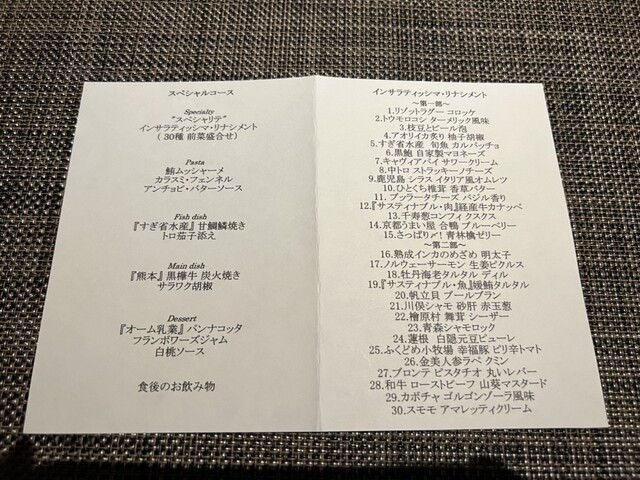 スペシャルコース
Specialty
"スペシャリテ"
インサラティッシマ・リナシメント
( 30種 前菜盛合せ )
Pasta
鮪ムッシャーメ
カラスミ・フェンネル
アンチョビ・バターソース
Fish dish
『すぎ省水産』甘鯛鱗焼き
トロ茄子添え
Main dish
『熊本』黒樺牛 炭火焼き
サラワク胡椒
Dessert
『オーム乳業』パンナコッタ
フランボワーズジャム
白桃ソース
食後のお飲み物
インサラティッシマ・リナシメント
～第一部～
1.リゾットラグー コロッケ
2.トウモロコシ ターメリック風味
3.枝豆とビール泡
4.アオリイカ炙り 柚子胡椒
5.すぎ省水産 旬魚 カルパッチョ
6.黒鮑 自家製マヨネーズ
7.キャヴィアパイ サワークリーム
8.中トロ ストラッキーノチーズ
9.鹿児島 シラス イタリア風オムレツ
10.ひとくち椎茸 香草バター
11. ブッラータチーズ バジル香り
12.『サスティナブル・肉』経産牛カナッペ
13.千寿葱コンフィ クスクス
14.京都うまい屋 合鴨 ブルーベリー
15.さっぱり〆! 青林檎ゼリー
～第二部～
16.熟成インカのめざめ 明太子
17.ノルウェーサーモン 生姜ピクルス
18.牡丹海老タルタル ディル
19.『サスティナブル・魚』媛鮪タルタル
20.帆立貝 ブールブラン
21.川俣シャモ 砂肝 赤玉葱
22.檜原村 舞茸 シーザー
23.青森シャモロック
24.蓮根 白隠元豆ピューレ
25.ふくどめ小牧場 幸福豚 ピリ辛トマト
26.金美人参ラペ クミン
27.ブロンテ ピスタチオ 丸いレバー
28.和牛 ローストビーフ 山葵マスタード
29.カボチャ ゴルゴンゾーラ風味
30.スモモ アマレッティクリーム